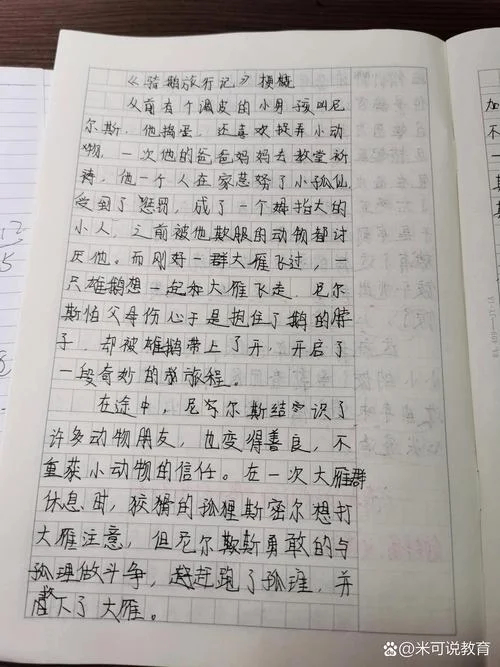 《骑鹅旅行记》梗概
从前有个调皮的小男孩叫尼
尔斯,他捣蛋,还喜欢捉弄小动
物,一次他的爸爸妈妈去教堂祈
祷,他一个人在家惹努了小狐仙,
受到了惩罚,成了一个拇指大的
小人,之前被他欺服的动物都讨
厌他。而刚好一群大雁飞过,一
只雄鹅想一起和大雁飞走,尼尔
斯怕父母伤心于是抱住了鹅的脖
子,却被雄鹅带上了天,开启了
一段奇妙的旅程。
在途中,尼尔斯结识了
许多动物朋友,也变得善良,不
重获小动物的信任。在一次大雁群
休息时,狡猾的狐狸斯密尔想打
大雁注意,但尼尔斯勇敢的与
狐狸做斗争,赶跑了狐狸,并
救下了大雁。
加
不
米可说教育